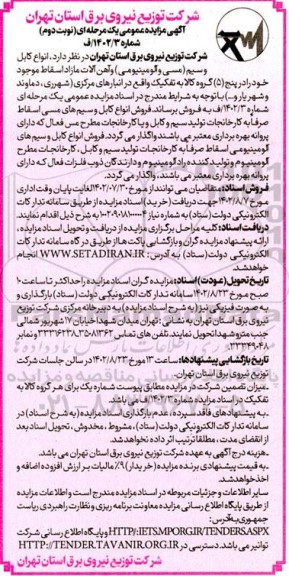 شرکت توزیع نیروی برق استان تهران
آگهی مزایده عمومی یک مرحله ای (نوبت دوم)
شماره ۱۴۰۲/۳/ف
شرکت توزیع نیروی برق استان تهران در نظر دارد، انواع کابل
و سیم (مسی و آلومینیومی) و آهن آلات مازاد اسقاط موجود
خود را در پنج (۵) گروه کالا به تفکیک واقع در انبارهای مرکزی (شهرری، دماوند
و شهریار و ...) با توجه به شرایط مندرج در اسناد مزایده عمومی یک مرحله ای
شماره ۱۴۰۲/۳/ف به فروش برساند. فروش انواع کابل و سیم های مسی اسقاط
صرفا به کارخانجات تولید سیم و کابل و یا کارخانجات مطرح مس فعال که دارای
پروانه بهره برداری معتبر می باشند واگذار می گردد. فروش انواع کابل و سیم های
آلومینیومی اسقاط صرفا به کارخانجات تولید سیم و کابل، کارخانجات مطرح
آلومینیوم و تولید کننده راد آلومینیوم و دارندگان ذوب فلزات فعال که دارای
پروانه بهره برداری معتبر می باشند، واگذار می گردد.
فروش اسناد: متقاضیان می توانند از مورخ ۱۴۰۲/۰۷/۳۰ لغایت پایان وقت اداری
مورخ ۱۴۰۲/۸/۷ جهت دریافت (خرید) اسناد مزایده از طریق سامانه تدارکات
الکترونیکی دولت (ستاد) به شماره نیاز به شرح ذیل اقدام نمایند.
دریافت اسناد: کلیه مراحل برگزاری مزایده از دریافت و تحویل اسناد مزایده،
ارائه پیشنهاد مزایده گران و بازگشایی پاکت ها از طریق درگاه سامانه تدارکات
الکترونیکی دولت (ستاد) به آدرس: WWW.SETADIRAN.IR انجام
خواهد شد.
تاریخ تحویل (عودت) اسناد: مزایده گران اسناد مزایده را حداکثر تا ساعت ۱۰
صبح مورخ ۱۴۰۲/۸/۲۳ سامانه تدارکات الکترونیکی دولت (ستاد) بارگذاری و
به صورت فیزیکی نیز (به شرح اسناد مزایده) به دبیرخانه مرکزی شرکت توزیع
نیروی برق استان تهران به نشانی: تهران میدان شهدا خیابان ۱۷ شهریور شمالی
جنب مترو شهدا تحویل نمایند. تلفن های تماس و نمابر
تاریخ بازگشایی پیشنهادها: ساعت ۱۳ مورخ ۱۴۰۲/۸/۲۳ در سالن جلسات شرکت
توزیع نیروی برق استان تهران.
میزان تضمین شرکت در مزایده مطابق پیوست شماره یک برای هر گروه کالا به
تفکیک در اسناد مزایده شماره ۱۴۰۲/۳/ف می باشد.
ـ به پیشنهادهای فاقد سپرده، عدم بارگذاری اسناد مزایده (به شرح اسناد) در
سامانه تدارکات الکترونیکی دولت (ستاد)، مشروط، مخدوش، تحویل اسناد بعد
از انقضای مدت، مطلقا ترتیب اثر داده نخواهد شد.
ـ هزینه درج آگهی به عهده شرکت توزیع نیروی برق استان تهران می باشد.
ـ به قیمت پیشنهادی برنده مزایده (خریدار) ۹٪ مالیات بر ارزش افزوده اضافه و
اخذ خواهد شد.
سایر اطلاعات و جزئیات مربوطه در اسناد مزایده مندرج است و اطلاعات مزایده
از طریق پایگاه اطلاع رسانی مزایده معاونت برنامه ریزی و نظارت راهبردی ریاست
جمهوری به آدرس:
HTTP://IETS.MPORG.IR/TENDERS.ASPX و پایگاه اطلاع رسانی شرکت
توانیر می باشد. دسترسی در HTTP://TENDER.TAVANIR.ORG.IR
شرکت توزیع نیروی برق استان تهران